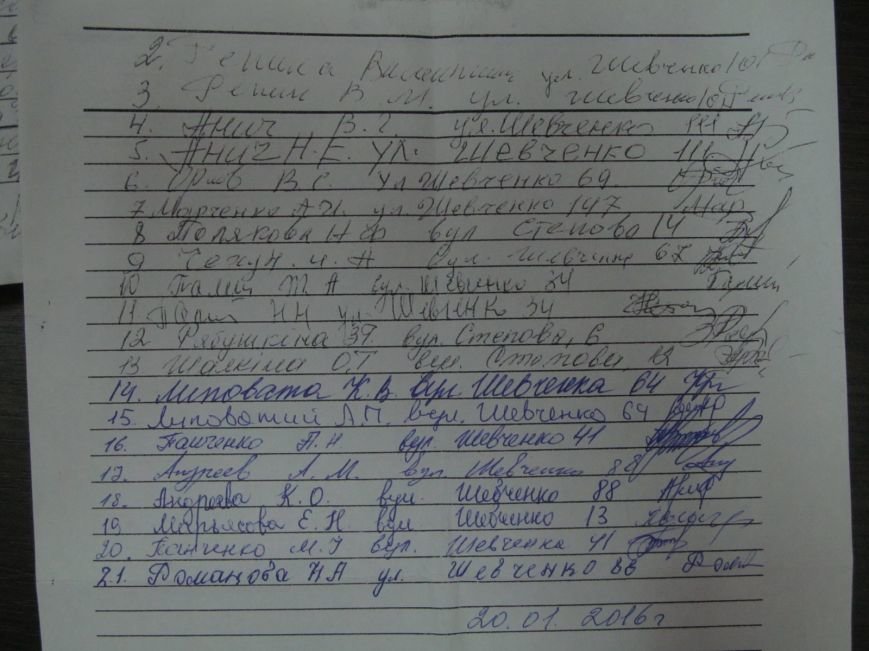 2. Репина Валентина ул. Шевченко 101
3. Репин В. М. ул. Шевченко 101
4. Янич В. Г. ул. Шевченко 111
5. Янич Н. Е. ул. Шевченко 111
6. Орлов В. С. ул Шевченко 69.
7 Марченко А. И. ул. Шевченко 147 Мар
8 Полякова Н Ф вул Степова 14
9 А вул. Шевченка 67
10 Палий А вул. Шевченко 34 Палий
11 Палий Н Н ул. Шевченк 34
12 Рябушкіна вул. Степова, 6
13 Шалкіна О. Т вул. Степова, 12
14. Липовата К. В. вул. Шевченка 64
15. Липоватий Л. П. вул. Шевченко 64
16. Панченко А. Н вул. Шевченко 41
17. Андреев А. М. вул. Шевченко 88
18. Андреева К. О. вул. Шевченко 88
19 Марьясова Е. Н вул Шевченко 13
20. Панченко М. вул. Шевченка 41
21. Романова Н А ул. Шевченко 88 Ром
20. 01. 2016 г